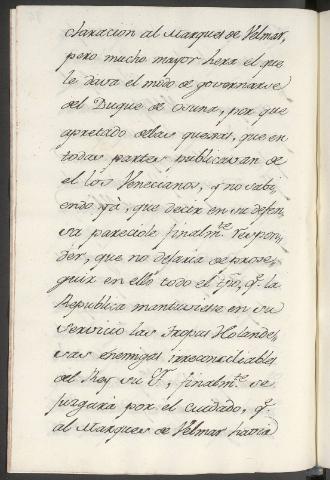 claracion al Marques de Velmar,
pero mucho mayor hera el que
le dava el modo de governarse
del Duque de Osuna, por que
apretado delas quexas, que en
todas partes publicavan de
el los Venecianos, y no sabi,
endo yà, que decir en su defen
sa pareciole finalm.te respon,
der, que no dexava de prose,
guir en ello todo el tpo, q.e la
Republica mantuviese en su
servicio las tropas Holande,
sas enemigas irreconciliables
del Rey su S.r, finalm.te se
juzgará por el cuidado, q.e
al Marques de Velmar havia